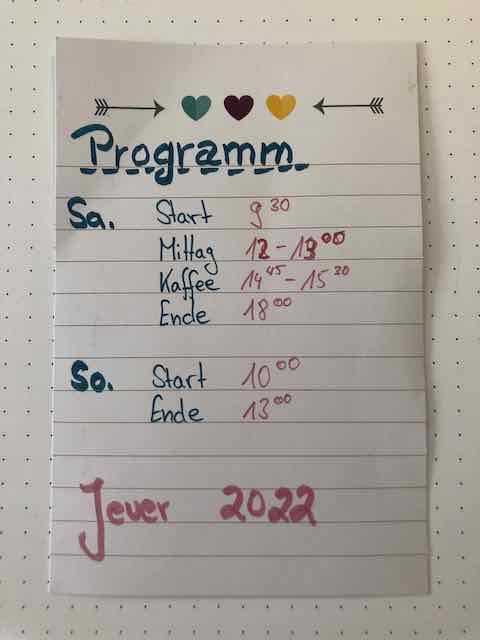 Programm
Sa. Start 9 30
Mittag 12 - 13 00
Kaffee 14 45 - 15 20
Ende 18 00
So. Start 10 00
Ende 13 00
Jever 2022